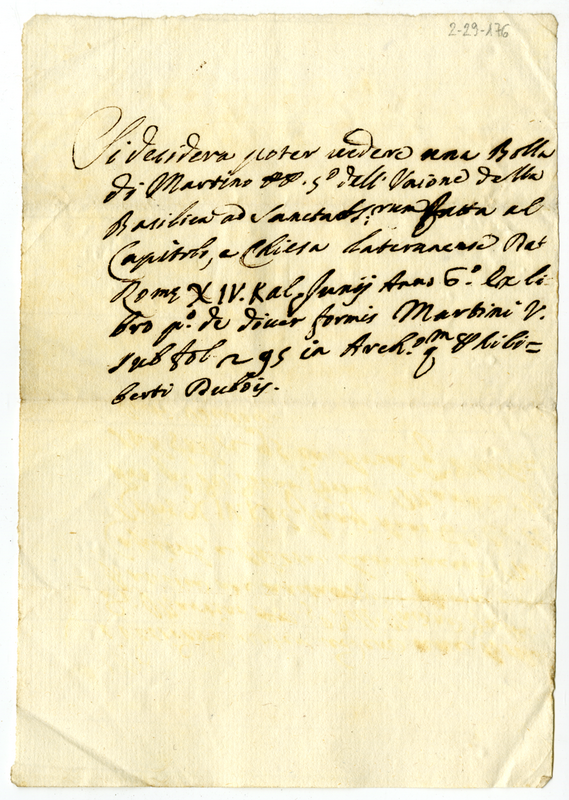 2-29-176
Si desidera poter vedere una Bolla
di Martino PP. 5º dell'Unione della
Basilica ad Sancta S:rum fatta al
Capitolo, e Chiesa Lateranense Dat
Romę XIV. Kal. Junij Anno 6.º Ex li-
bro pº. de diver formis Martini V.
sub fol. 295 in Arch.º q.m Phili=
berti Dubois.